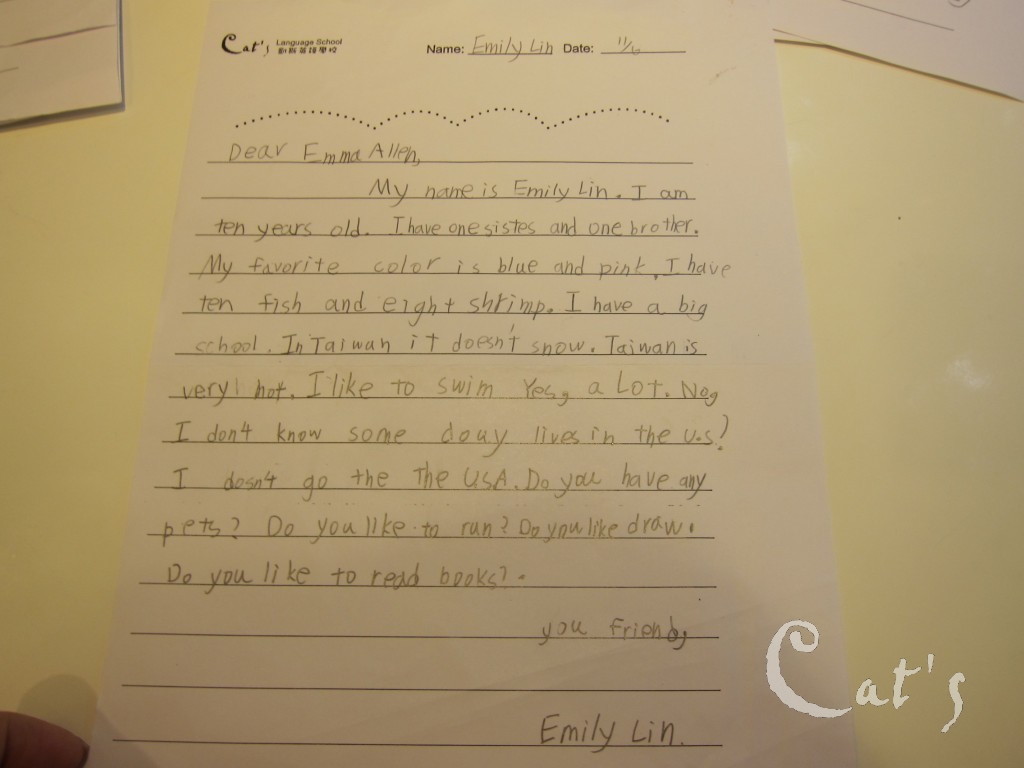 Cat's Language School
Name: Emily Lin Date: 11/6
Dear Emma Allen,
My name is Emily Lin. I am
ten years old. I have one sistes and one brother.
My favorite color is blue and pink. I have
ten fish and eight shrimp. I have a big
school. In Taiwan it doesn't snow. Taiwan is
very hot. I like to swim Yes, a Lot. No,
I don't know some douy lives in the U.S?
I dosn't go the the USA. Do you have any
pets? Do you like to run? Do you like draw.
Do you like to read books?.
you friend,
Emily Lin.
Cat's